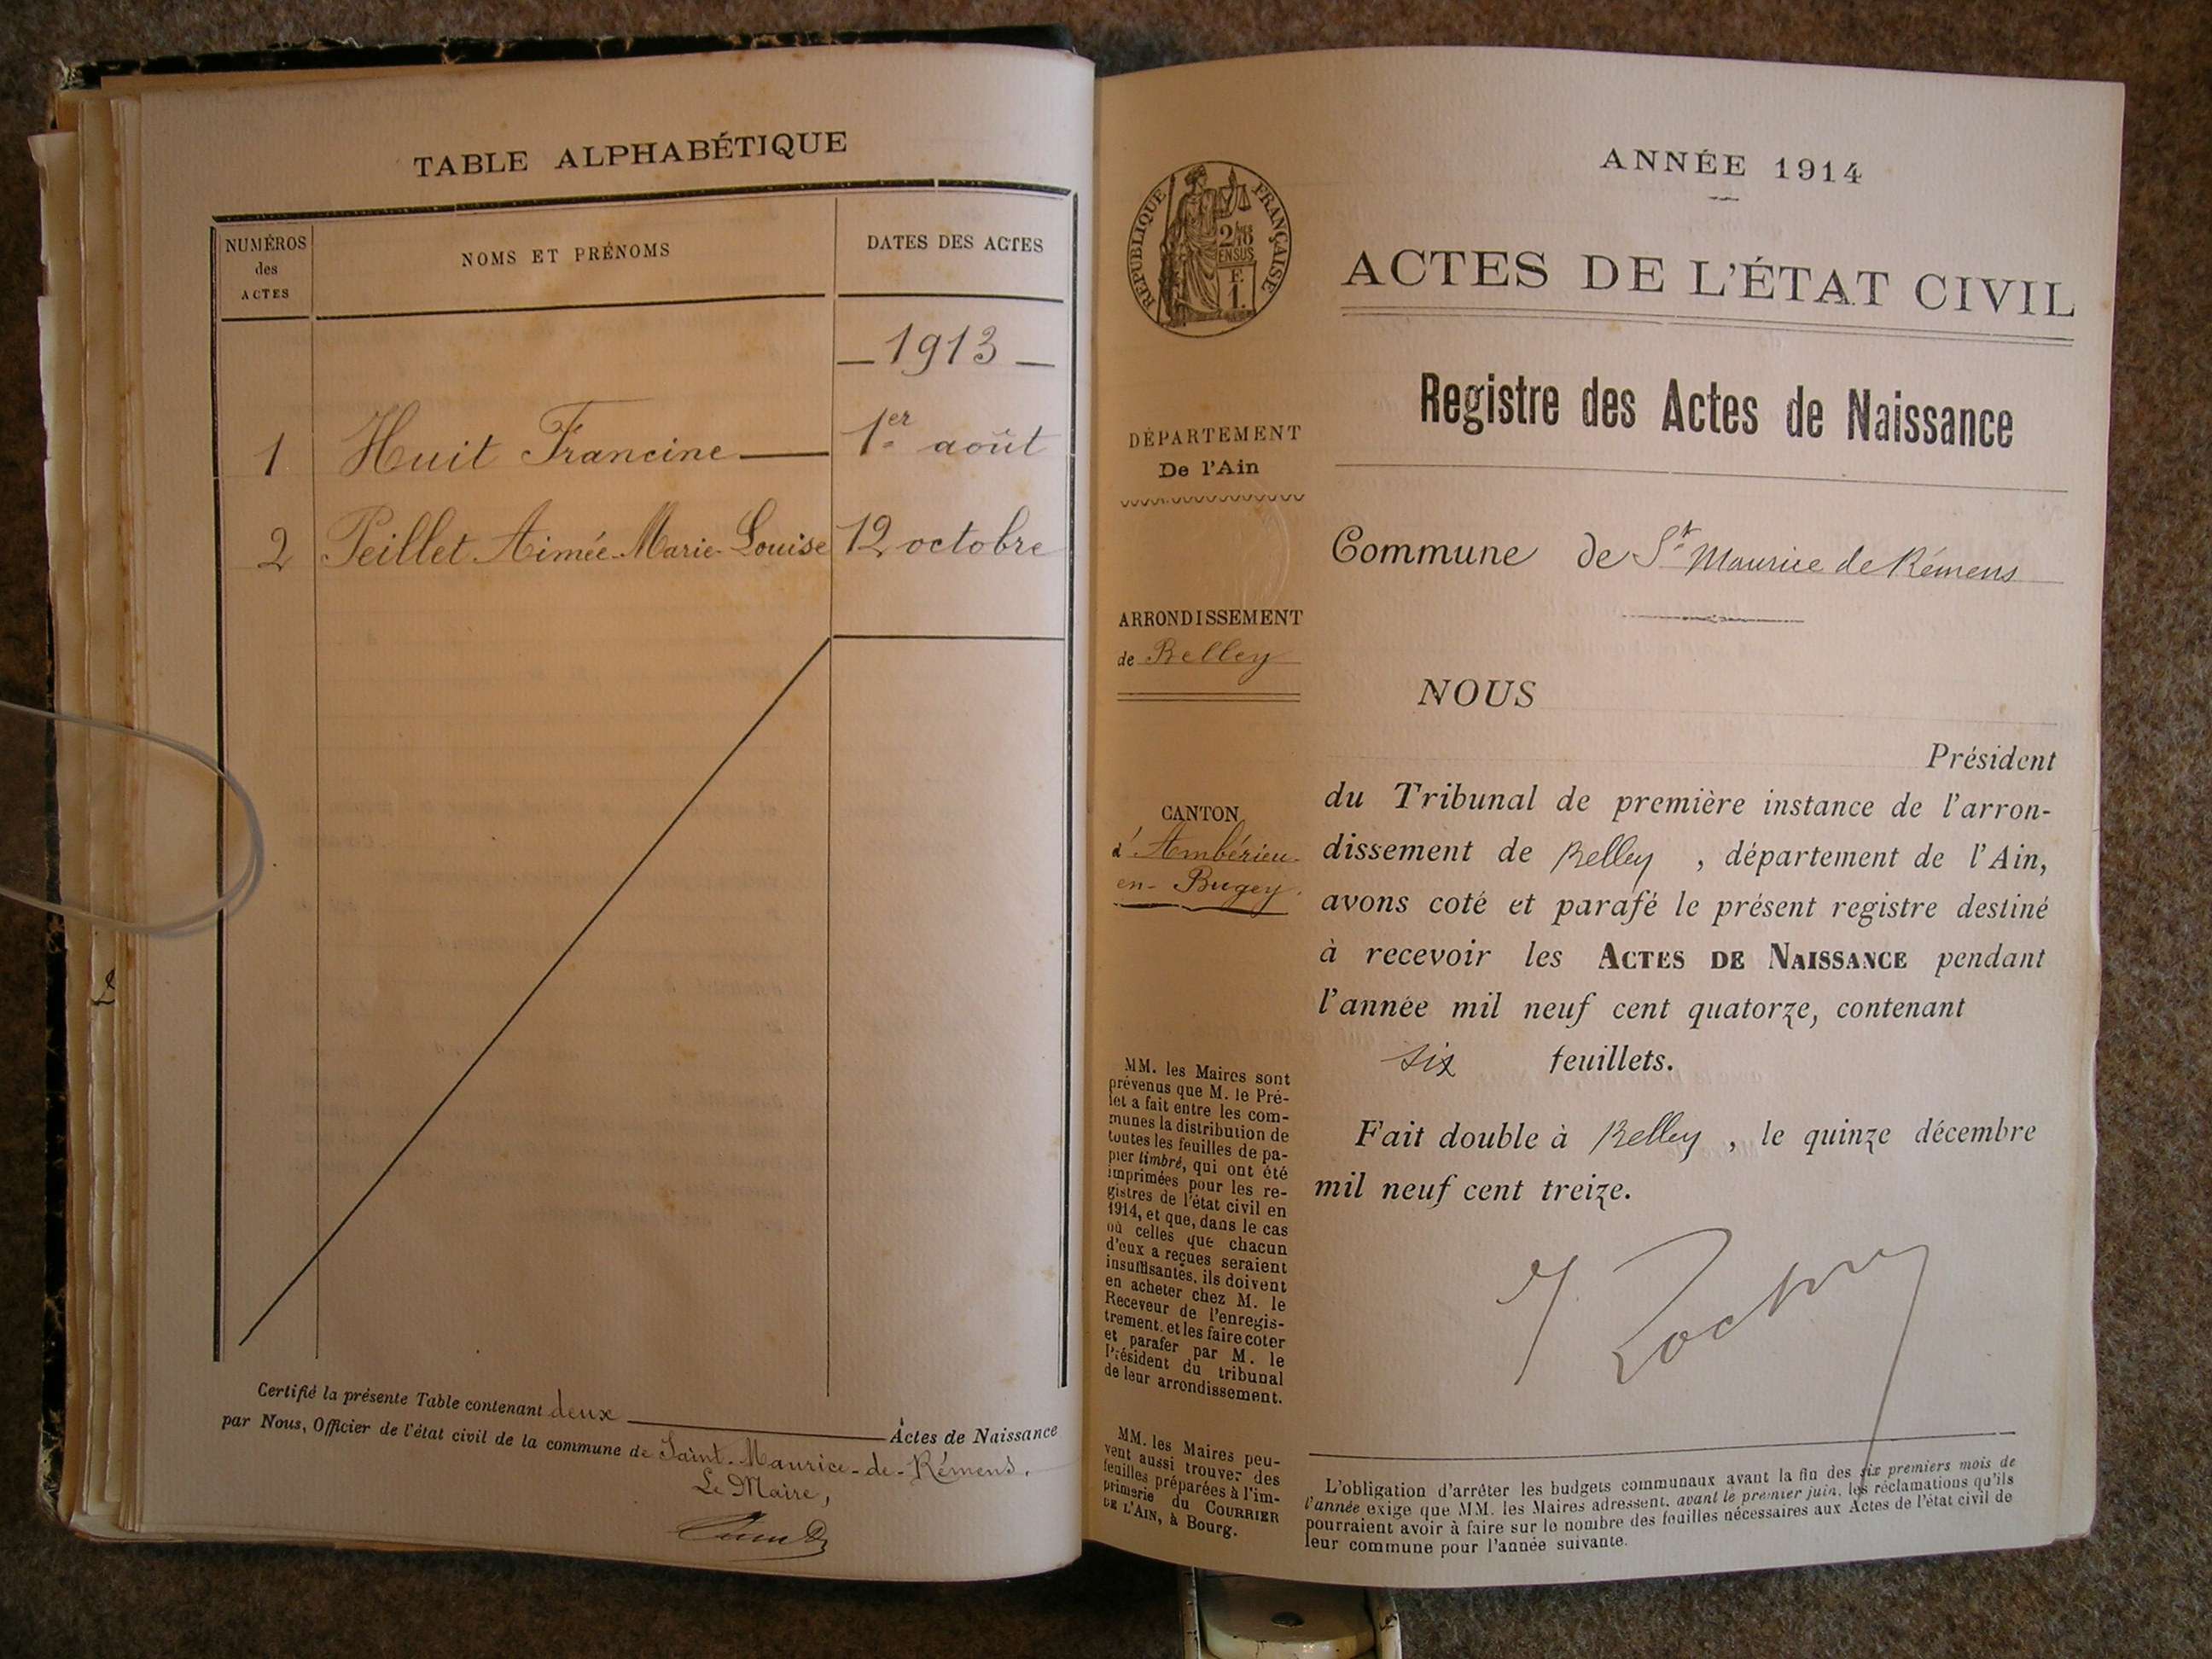 TABLE ALPHABÉTIQUE
NUMÉROS
des
ACTES
NOMS ET PRÉNOMS
DATES DES ACTES
— 1913 —
1 Huit Francine — 1er août
2 Peillet Aimée-Marie-Louise 12 octobre
Certifié la présente Table contenant deux — Actes de Naissance
par Nous, Officier de l'état civil de la commune de Saint-Maurice-de-Rémens.
Le Maire,
RÉPUBLIQUE FRANÇAISE
ANNÉE 1914
ACTES DE L'ÉTAT CIVIL
Registre des Actes de Naissance
DÉPARTEMENT
De l'Ain
Commune de St Maurice de Rémens
ARRONDISSEMENT
de Belley
CANTON
d'Ambérieu-
en-Bugey.
NOUS
Président
du Tribunal de première instance de l'arron-
dissement de Belley , département de l'Ain,
avons coté et parafé le présent registre destiné
à recevoir les ACTES DE NAISSANCE pendant
l'année mil neuf cent quatorze, contenant
six feuillets.
Fait double à Belley , le quinze décembre
mil neuf cent treize.
MM. les Maires sont
prévenus que M. le Pré-
fet a fait entre les com-
munes la distribution de
toutes les feuilles de pa-
pier timbré, qui ont été
imprimées pour les re-
gistres de l'état civil en
1914, et que, dans le cas
où celles que chacun
d'eux a reçues seraient
insuffisantes, ils doivent
en acheter chez M. le
Receveur de l'enregis-
trement, et les faire coter
et parafer par M. le
Président du tribunal
de leur arrondissement.
MM. les Maires peu-
vent aussi trouver des
feuilles préparées à l'im-
primerie du COURRIER
DE L'AIN, à Bourg.
L'obligation d'arrêter les budgets communaux avant la fin des six premiers mois de
l'année exige que MM. les Maires adressent, avant le premier juin, les réclamations qu'ils
pourraient avoir à faire sur le nombre des feuilles nécessaires aux Actes de l'état civil de
leur commune pour l'année suivante.